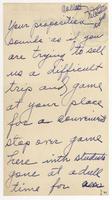 Your proposition
sounds as if you
are trying to sell
us a difficult
trip and game
at your place
for a convenient
stop over game
here with students
gone at a dull
time for